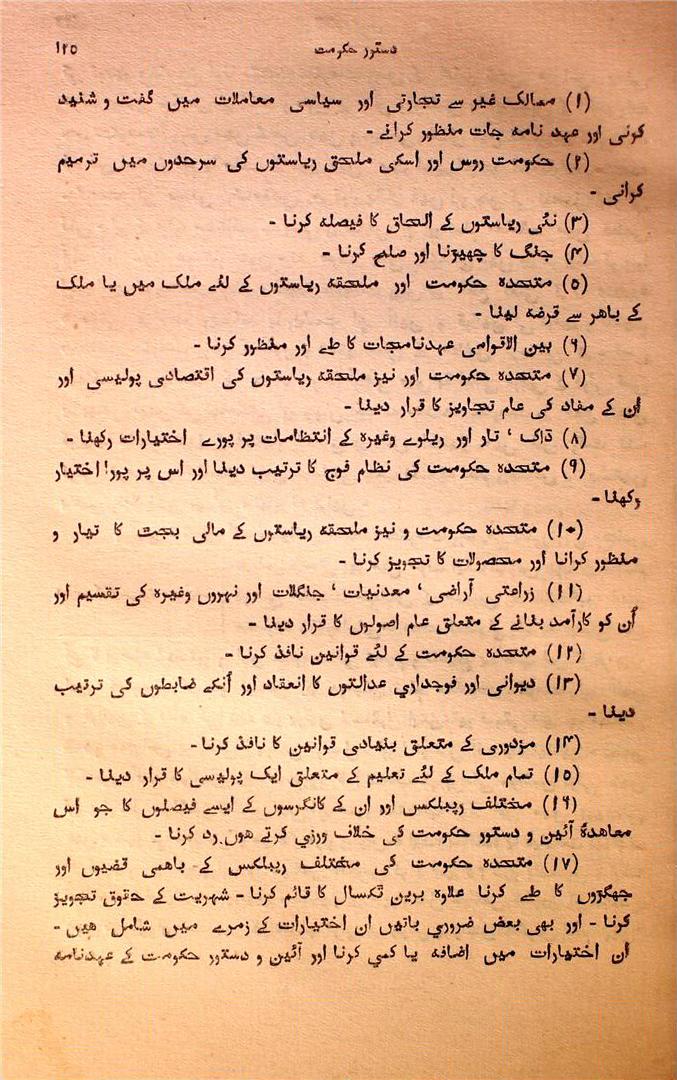 دستور حکومت ۱۲۵
(۱) ممالک غیر سے تجارتی اور سیاسی معاملات میں گفت و شنید
کرنی اور عہد نامہ جات منظور کرانے -
(۲) حکومت روس اور اسکی ملحق ریاستوں کی سرحدوں میں ترمیم
کرانی -
(۳) نئی ریاستوں کے الحاق کا فیصلہ کرنا -
(۴) جنگ کا چھیڑنا اور صلح کرنا -
(۵) متحدہ حکومت اور ملحقہ ریاستوں کے لئے ملک میں یا ملک
کے باہر سے قرضہ لینا -
(۶) بین الاقوامی عہدنامجات کا طے اور منظور کرنا -
(۷) متحدہ حکومت اور نیز ملحقہ ریاستوں کی اقتصادی پولیسی اور
اُن کے مفاد کی عام تجاویز کا قرار دینا -
(۸) ڈاک ' تار اور ریلوے وغیرہ کے انتظامات پر پورے اختیارات رکھنا -
(۹) متحدہ حکومت کی نظام فوج کا ترتیب دینا اور اس پر پورا اختیار
رکھنا -
(۱۰) متحدہ حکومت و نیز ملحقہ ریاستوں کے مالی بجٹ کا تیار و
منظور کرانا اور محصولات کا تجویز کرنا -
(۱۱) زراعتی آراضی ' معدنیات ' جنگلات اور نہروں وغیرہ کی تقسیم اور
اُن کو کارآمد بنانے کے متعلق عام اصولوں کا قرار دینا -
(۱۲) متحدہ حکومت کے لئے قوانین نافذ کرنا -
(۱۳) دیوانی اور فوجداری عدالتوں کا انعقاد اور اُنکے ضابطوں کی ترتیب
دینا -
(۱۴) مزدوری کے متعلق بنیادی قوانین کا نافذ کرنا -
(۱۵) تمام ملک کے لئے تعلیم کے متعلق ایک پولیسی کا قرار دینا -
(۱۶) مختلف ریپبلکس اور ان کے کانگرسوں کے ایسے فیصلوں کا جو اس
معاهدۂ آئین و دستور حکومت کی خلاف ورزی کرتے ہوں رد کرنا -
(۱۷) متحدہ حکومت کی مختلف ریپبلکس کے باہمی قضیوں اور
جھگڑوں کا طے کرنا علاوہ بریں ٹکسال کا قائم کرنا - شہریت کے حقوق تجویز
کرنا - اور بھی بعض ضروری باتیں ان اختیارات کے زمرے میں شامل ہیں -
ان اختیارات میں اضافہ یا کمی کرنا اور آئین و دستور حکومت کے عہدنامہ